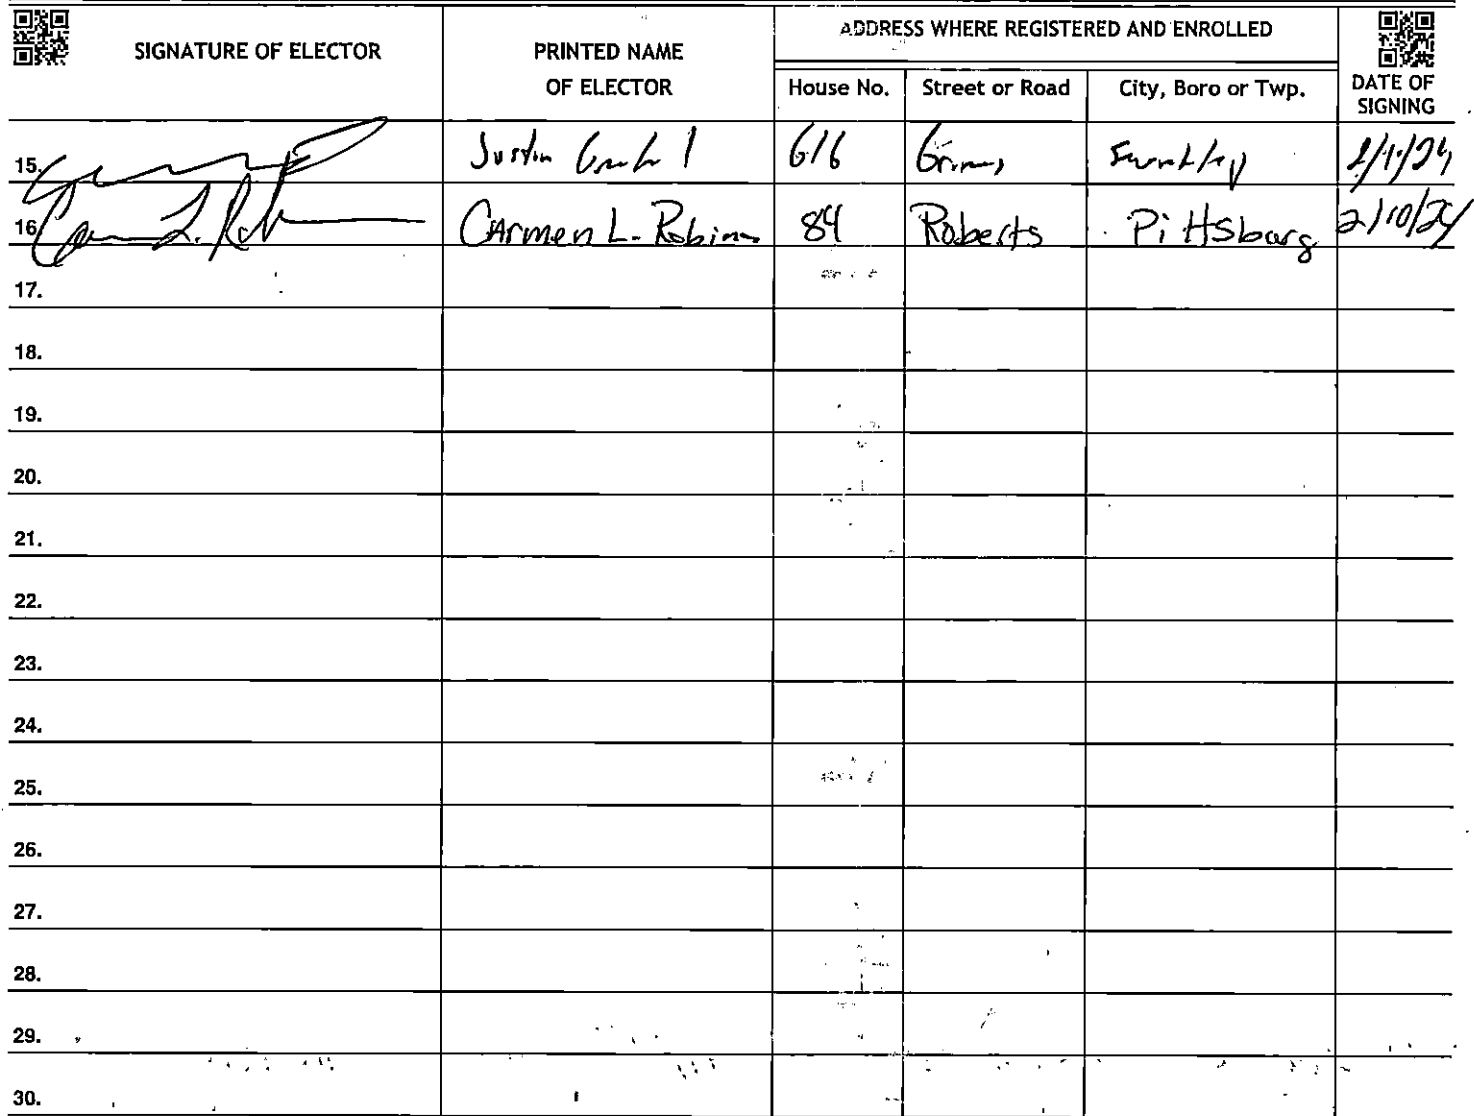 SIGNATURE OF ELECTOR
PRINTED NAME
OF ELECTOR
ADDRESS WHERE REGISTERED AND ENROLLED
House No. Street or Road City, Boro or Twp.
DATE OF
SIGNING
15. Justin 616
16. Carmen L. 84 Roberts Pittsburg 2/10/24
17.
18.
19.
20.
21.
22.
23.
24.
25.
26.
27.
28.
29.
30.